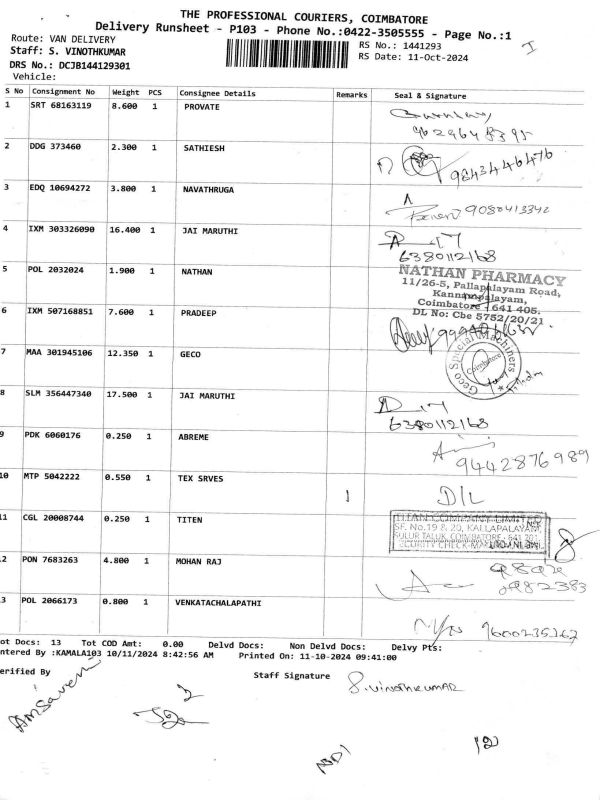 THE PROFESSIONAL COURIERS, COIMBATORE
Delivery Runsheet - P103 - Phone No.:0422-3505555 - Page No.:1
Route: VAN DELIVERY
Staff: S. VINOTHKUMAR
DRS No.: DCJB144129301
Vehicle:
RS No.: 1441293
RS Date: 11-Oct-2024
S No Consignment No Weight PCS Consignee Details Remarks Seal & Signature
1 SRT 68163119 8.600 1 PROVATE
2 DDG 373460 2.300 1 SATHIESH 9843446476
3 EDQ 10694272 3.800 1 NAVATHRUGA 9080413342
4 IXM 303326090 16.400 1 JAI MARUTHI 6380112168
5 POL 2032024 1.900 1 NATHAN
NATHAN PHARMACY
11/26-5, Pallapalayam Road,
Kannampalayam,
Coimbatore 641 405.
DL No: Cbe 5752/20/21
6 IXM 507168851 7.600 1 PRADEEP
7 MAA 301945106 12.350 1 GECO
Geco Special Machiners
Coimbatore
8 SLM 356447340 17.500 1 JAI MARUTHI 6380112168
9 PDK 6060176 0.250 1 ABREME 9442876989
10 MTP 5042222 0.550 1 TEX SRVES 1 D/L
11 CGL 20008744 0.250 1 TITEN
TITAN COMPANY LIMITED
SF. No.19 & 20, KALLAPALAYAM,
SULUR TALUK, COIMBATORE - 641 201
.2 PON 7683263 4.800 1 MOHAN RAJ
3 POL 2066173 0.800 1 VENKATACHALAPATHI 9600235262
ot Docs: 13 Tot COD Amt: 0.00 Delvd Docs: Non Delvd Docs: Delvy Pts:
ntered By :KAMALA103 10/11/2024 8:42:56 AM Printed On: 11-10-2024 09:41:00
erified By Staff Signature
S.VINOTHKUMAR